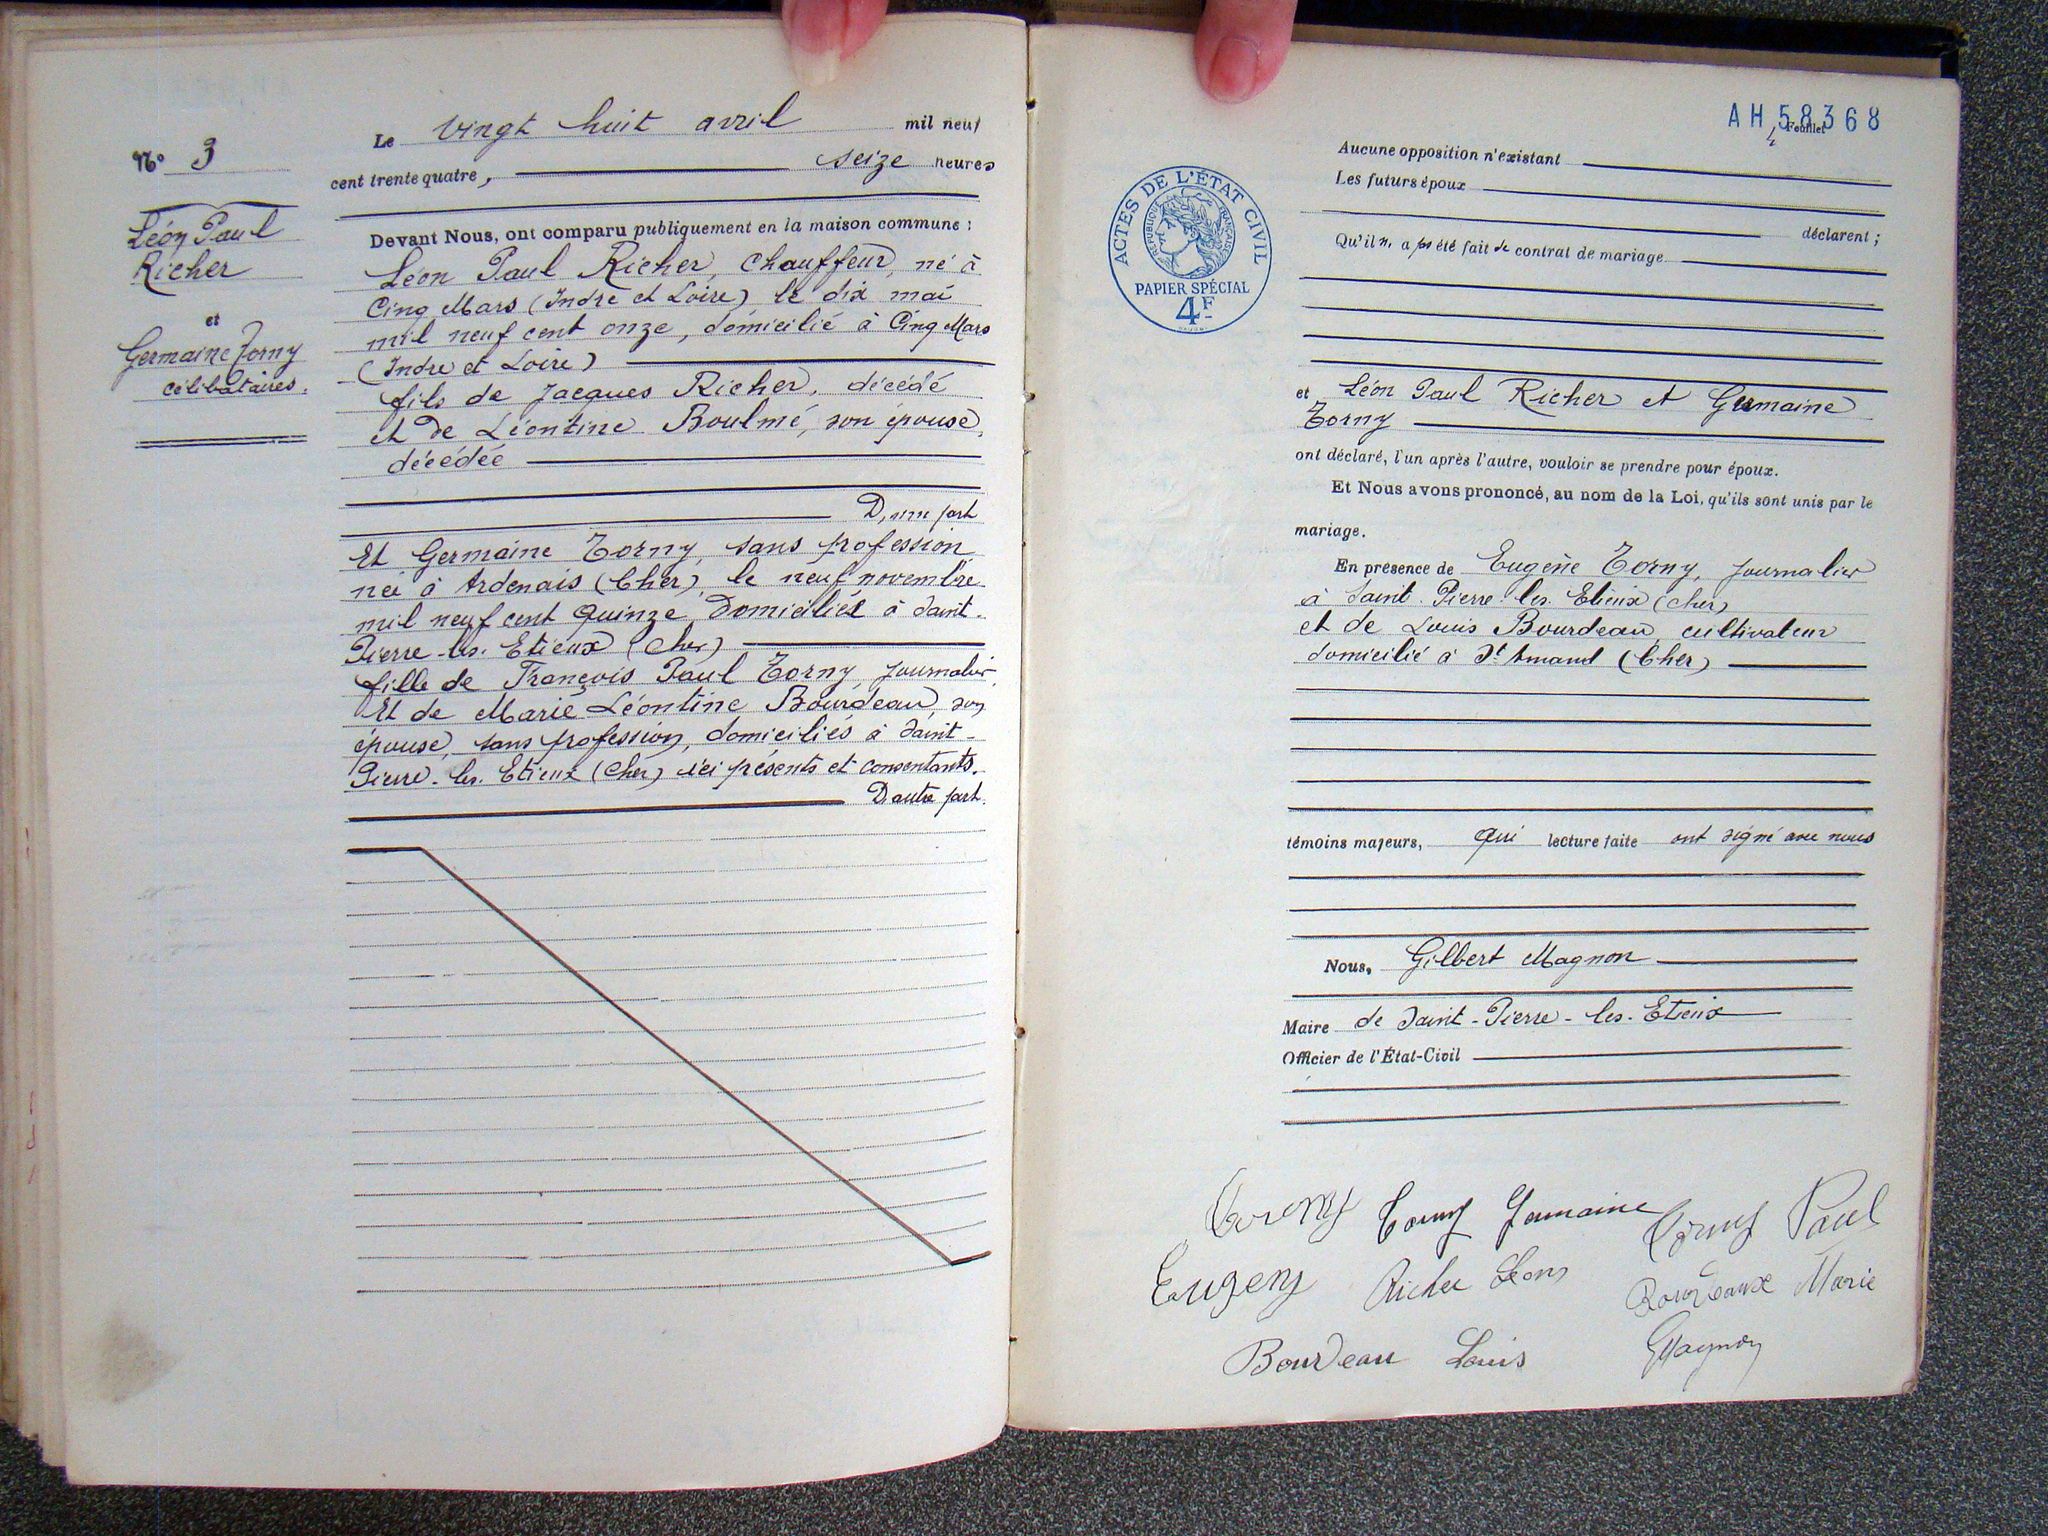 N° 3
Léon Paul
Richer
et
Germaine Torny
célibataires.
Le vingt huit avril mil neuf
cent trente quatre, seize heures
Devant Nous, ont comparu publiquement en la maison commune :
Léon Paul Richer, chauffeur, né à
Cinq Mars (Indre et Loire) le dix mai
mil neuf cent onze, domicilié à Cinq Mars
(Indre et Loire)
fils de Jacques Richer, décédé
et de Léontine Boulmé, son épouse,
décédée
D, une part
Et Germaine Torny, sans profession,
née à Ardenais (Cher), le neuf novembre
mil neuf cent quinze, domiciliée à Saint-
Pierre-les-Etieux (Cher)
fille de François Paul Torny, journalier,
Et de Marie Léontine Bourdeau, son
épouse, sans profession, domiciliés à Saint-
Pierre-les-Etieux (Cher) ici présents et consentants.
D'autre part.
AH 58368
4 Feuillet
ACTES DE L'ÉTAT CIVIL
RÉPUBLIQUE FRANÇAISE
PAPIER SPÉCIAL
4F
Aucune opposition n'existant
Les futurs époux
déclarent ;
Qu'il n, a pas été fait de contrat de mariage
et Léon Paul Richer et Germaine
Torny
ont déclaré, l'un après l'autre, vouloir se prendre pour époux.
Et Nous avons prononcé, au nom de la Loi, qu'ils sont unis par le
mariage.
En présence de Eugène Torny, journalier
à Saint-Pierre-les-Etieux (Cher)
et de Louis Bourdeau, cultivateur
domicilié à St Amand (Cher)
témoins majeurs, qui lecture faite ont signé avec nous
Nous, Gilbert Magnon
Maire de Saint-Pierre-les-Etieux
Officier de l'État-Civil
Torny Torny Germaine Torny Paul
Eugeny Richer Léon Bourdeaux Marie
Bourdeau Louis GMagnon